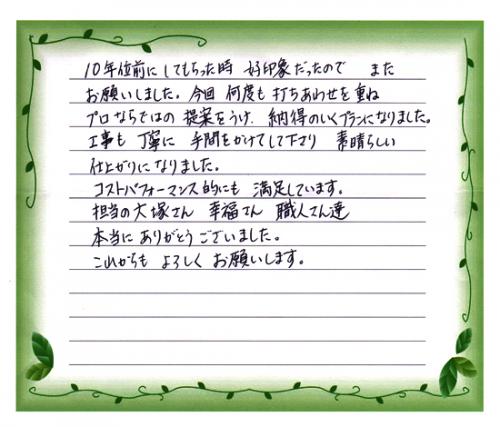 10年位前に してもらった時 好印象だったので また
お願いしました。今回 何度も 打ちあわせを重ね
プロならではの 提案をうけ、納得のいくプランになりました。
工事も 丁寧に 手間をかけてして下さり 素晴らしい
仕上がりになりました。
コストパフォーマンス的にも 満足しています。
担当の大塚さん 幸福さん 職人さん達
本当に ありがとうございました。
これからも よろしく お願いします。